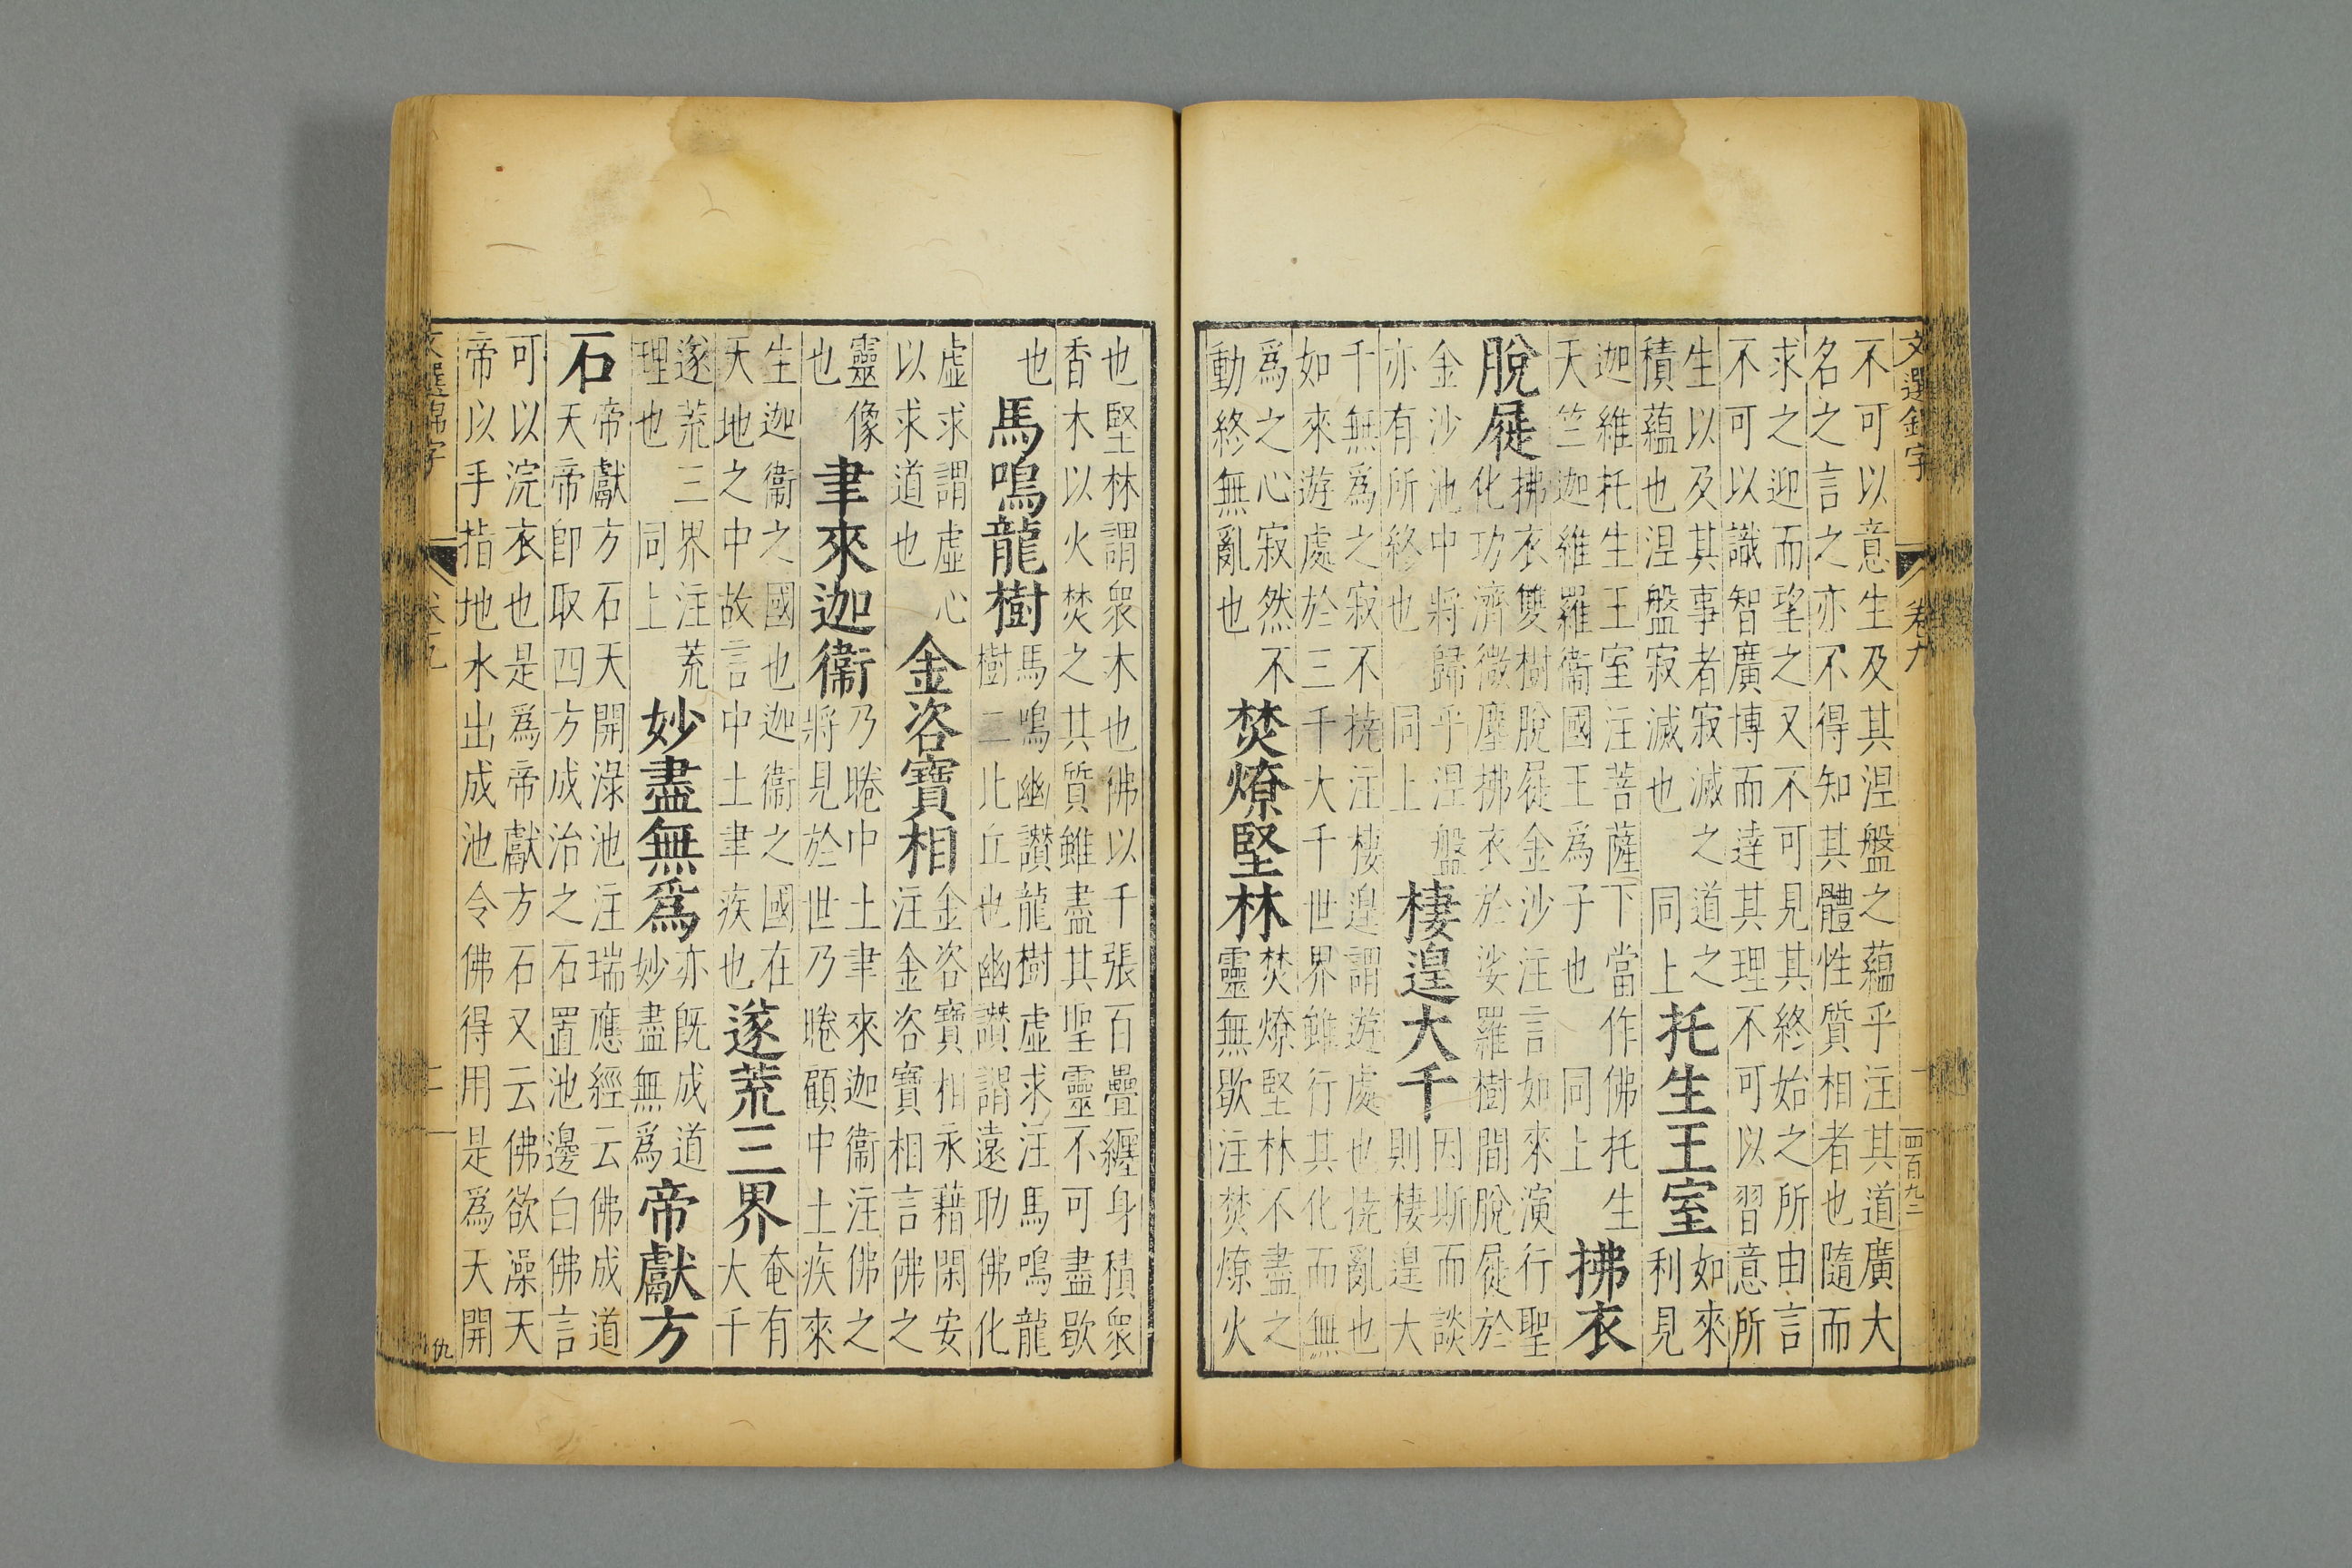 文選錦字 卷九 一 四百九二
不可以意生及其涅盤之蘊乎注其道廣大
名之言之亦不得知其體性質相者也隨而
求之迎而望之又不可見其終始之所由言
不可以識智廣博而達其理不可以習意所
生以及其事者寂滅之道之
積蘊也涅盤寂滅也 同上
托生王室
如來
利見
迦維托生王室注菩薩下當作佛托生
天竺迦維羅衞國王為子也 同上
拂衣
脫屣
拂衣雙樹脫屣金沙注言如來演行聖
化功濟微塵拂衣於娑羅樹間脫屣於
金沙池中將歸乎涅盤
亦有所終也 同上
棲遑大千
因斯而談
則棲遑大
千無為之寂不撓注棲遑謂遊處也撓亂也
如來遊處於三千大千世界雖行其化而無
爲之心寂然不
動終無亂也
焚燎堅林
焚燎堅林不盡之
靈無歇注焚燎火
也堅林謂衆木也佛以千張百疊纏身積衆
香木以火焚之其質雖盡其聖靈不可盡歇
也
馬鳴龍樹
馬鳴幽讃龍樹虛求注馬鳴龍
樹二比丘也幽讃謂遠助佛化
虛求謂虛心
以求道也
金咨寶相
金咨寶相永藉閑安
注金咨寶相言佛之
靈像
也
聿來迦衞
乃睠中土聿來迦衞注佛之
將見於世乃睠顧中土疾來
生迦衞之國也迦衞之國在
天地之中故言中土聿疾也
遂荒三界
奄有
大千
遂荒三界注荒
理也 同上
妙盡無爲
亦旣成道
妙盡無為
帝獻方
石
帝獻方石天開淥池注瑞應經云佛成道
天帝卽取四方成治之石置池邊白佛言
可以浣衣也是爲帝獻方石又云佛欲澡天
帝以手指地水出成池令佛得用是爲天開
文選錦字 卷九 二 仇